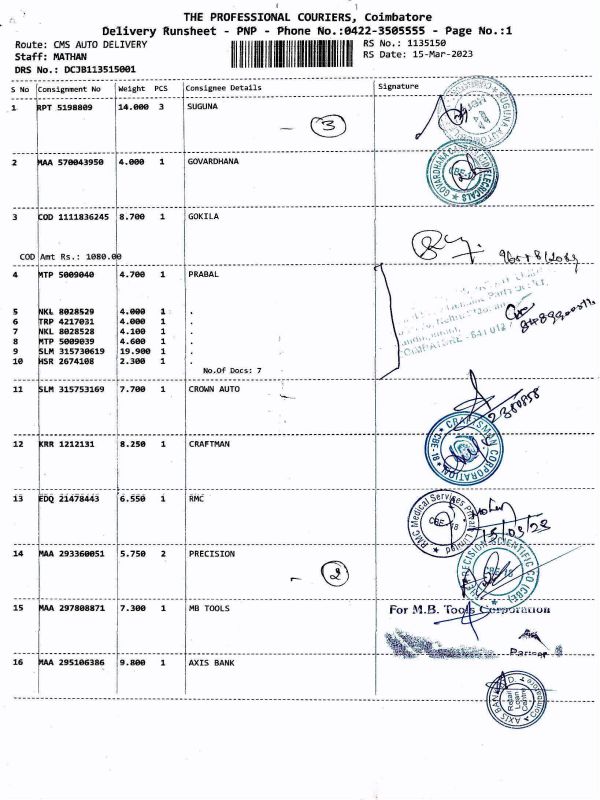 THE PROFESSIONAL COURIERS, Coimbatore
Delivery Runsheet - PNP - Phone No.:0422-3505555 - Page No.:1
Route: CMS AUTO DELIVERY RS No.: 1135150
Staff: MATHAN RS Date: 15-Mar-2023
DRS No.: DCJB113515001
S No Consignment No Weight PCS Consignee Details Signature
1 RPT 5198809 14.000 3 SUGUNA
- 3
2 MAA 570043950 4.000 1 GOVARDHANA
3 COD 1111836245 8.700 1 GOKILA
COD Amt Rs.: 1080.00
4 MTP 5009040 4.700 1 PRABAL
5 NKL 8028529 4.000 1 .
6 TRP 4217031 4.000 1 .
7 NKL 8028528 4.100 1 .
8 MTP 5009039 4.600 1 .
9 SLM 315730619 19.900 1 .
10 HSR 2674108 2.300 1 .
No.Of Docs: 7
COIMBATORE - 641 012
11 SLM 315753169 7.700 1 CROWN AUTO
12 KRR 1212131 8.250 1 CRAFTMAN
CRAFTSMAN CORPORATION
CBE-18
13 EDQ 21478443 6.550 1 RMC
RMC Medical Services Private Limited
CBE-18
15/03/23
14 MAA 293360051 5.750 2 PRECISION
- 2
PRECISION SCIENTIFIC CO (CBE)
CBE-18
15 MAA 297808871 7.300 1 MB TOOLS
For M.B. Tools Corporation
Partner
16 MAA 295106386 9.800 1 AXIS BANK
AXIS BANK
Retail
Loan
Centre